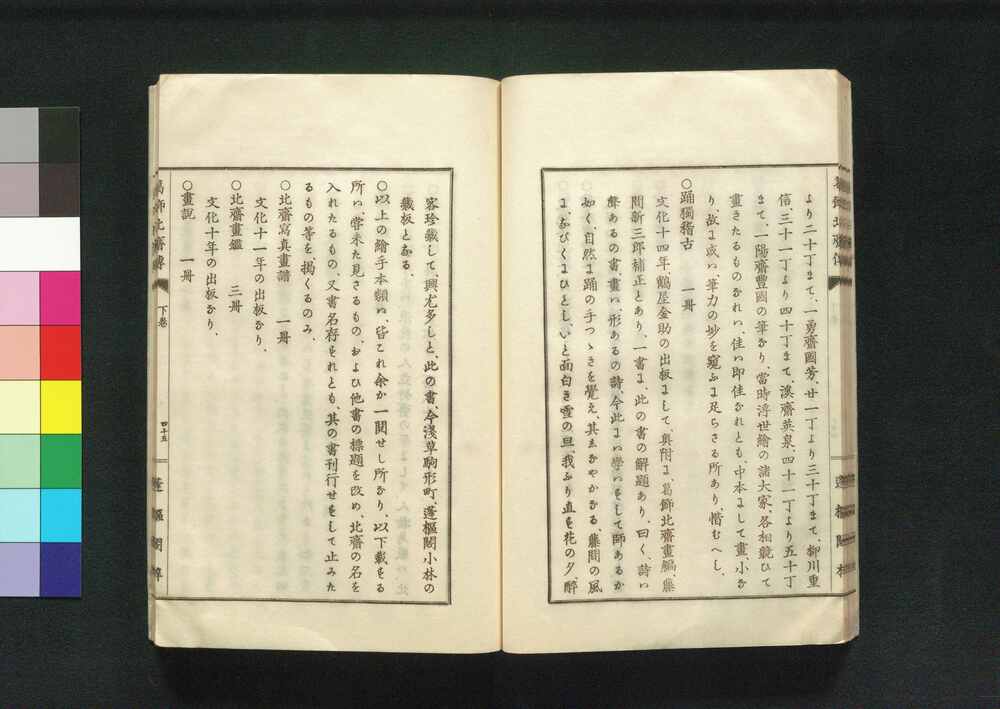 より二十丁まて、一勇齋國芳、廿一丁より三十丁まて、柳川重
信、三十一丁より四十丁まて、溪齋英泉、四十一丁より五十丁
まて、一陽齋豐國の筆なり、當時浮世繪の諸大家、各相競ひて
畫きたるものなれハ、佳ハ即佳なれとも、中本にして畫、小な
り、故に或ハ、筆力の妙を窺ふに足らさる所あり、惜むへし、
○踊獨稽古　一冊
文化十四年、鶴屋金助の出板にして、奥附に、葛飾北齋畫編、藤
間新三郎補正とあり、一書に、此の書の解題あり、曰く、詩ハ
聲あるの書、畫ハ、形あるの詩、今此にハ學ハすして師あるか
如く、自然に踊の手つゝきを覺え、其まなやかなる、藤間の風
に、なひくにひとし、いと面白き雪の旦、我ふり直せ花の夕、醉
客珍藏して、興尤多しと、此の書、今淺草駒形町、蓬樞閣小林の
藏板となる、
○以上の繪手本類ハ、皆これ余か一閲せし所なり、以下載する
所ハ、甞未た見さるもの、および他書の標題を改め、北齋の名を
入れたるもの、又書名存すれとも、其の書刊行せすして止みた
るもの等を掲くるのみ、
○北齋寫真畫譜　一冊
文化十一年の出板なり、
○北齋畫鑑　三冊
文化十年の出板なり、
○畫説　一冊
葛飾北齋傳
下卷
四十五
蓬樞閣梓